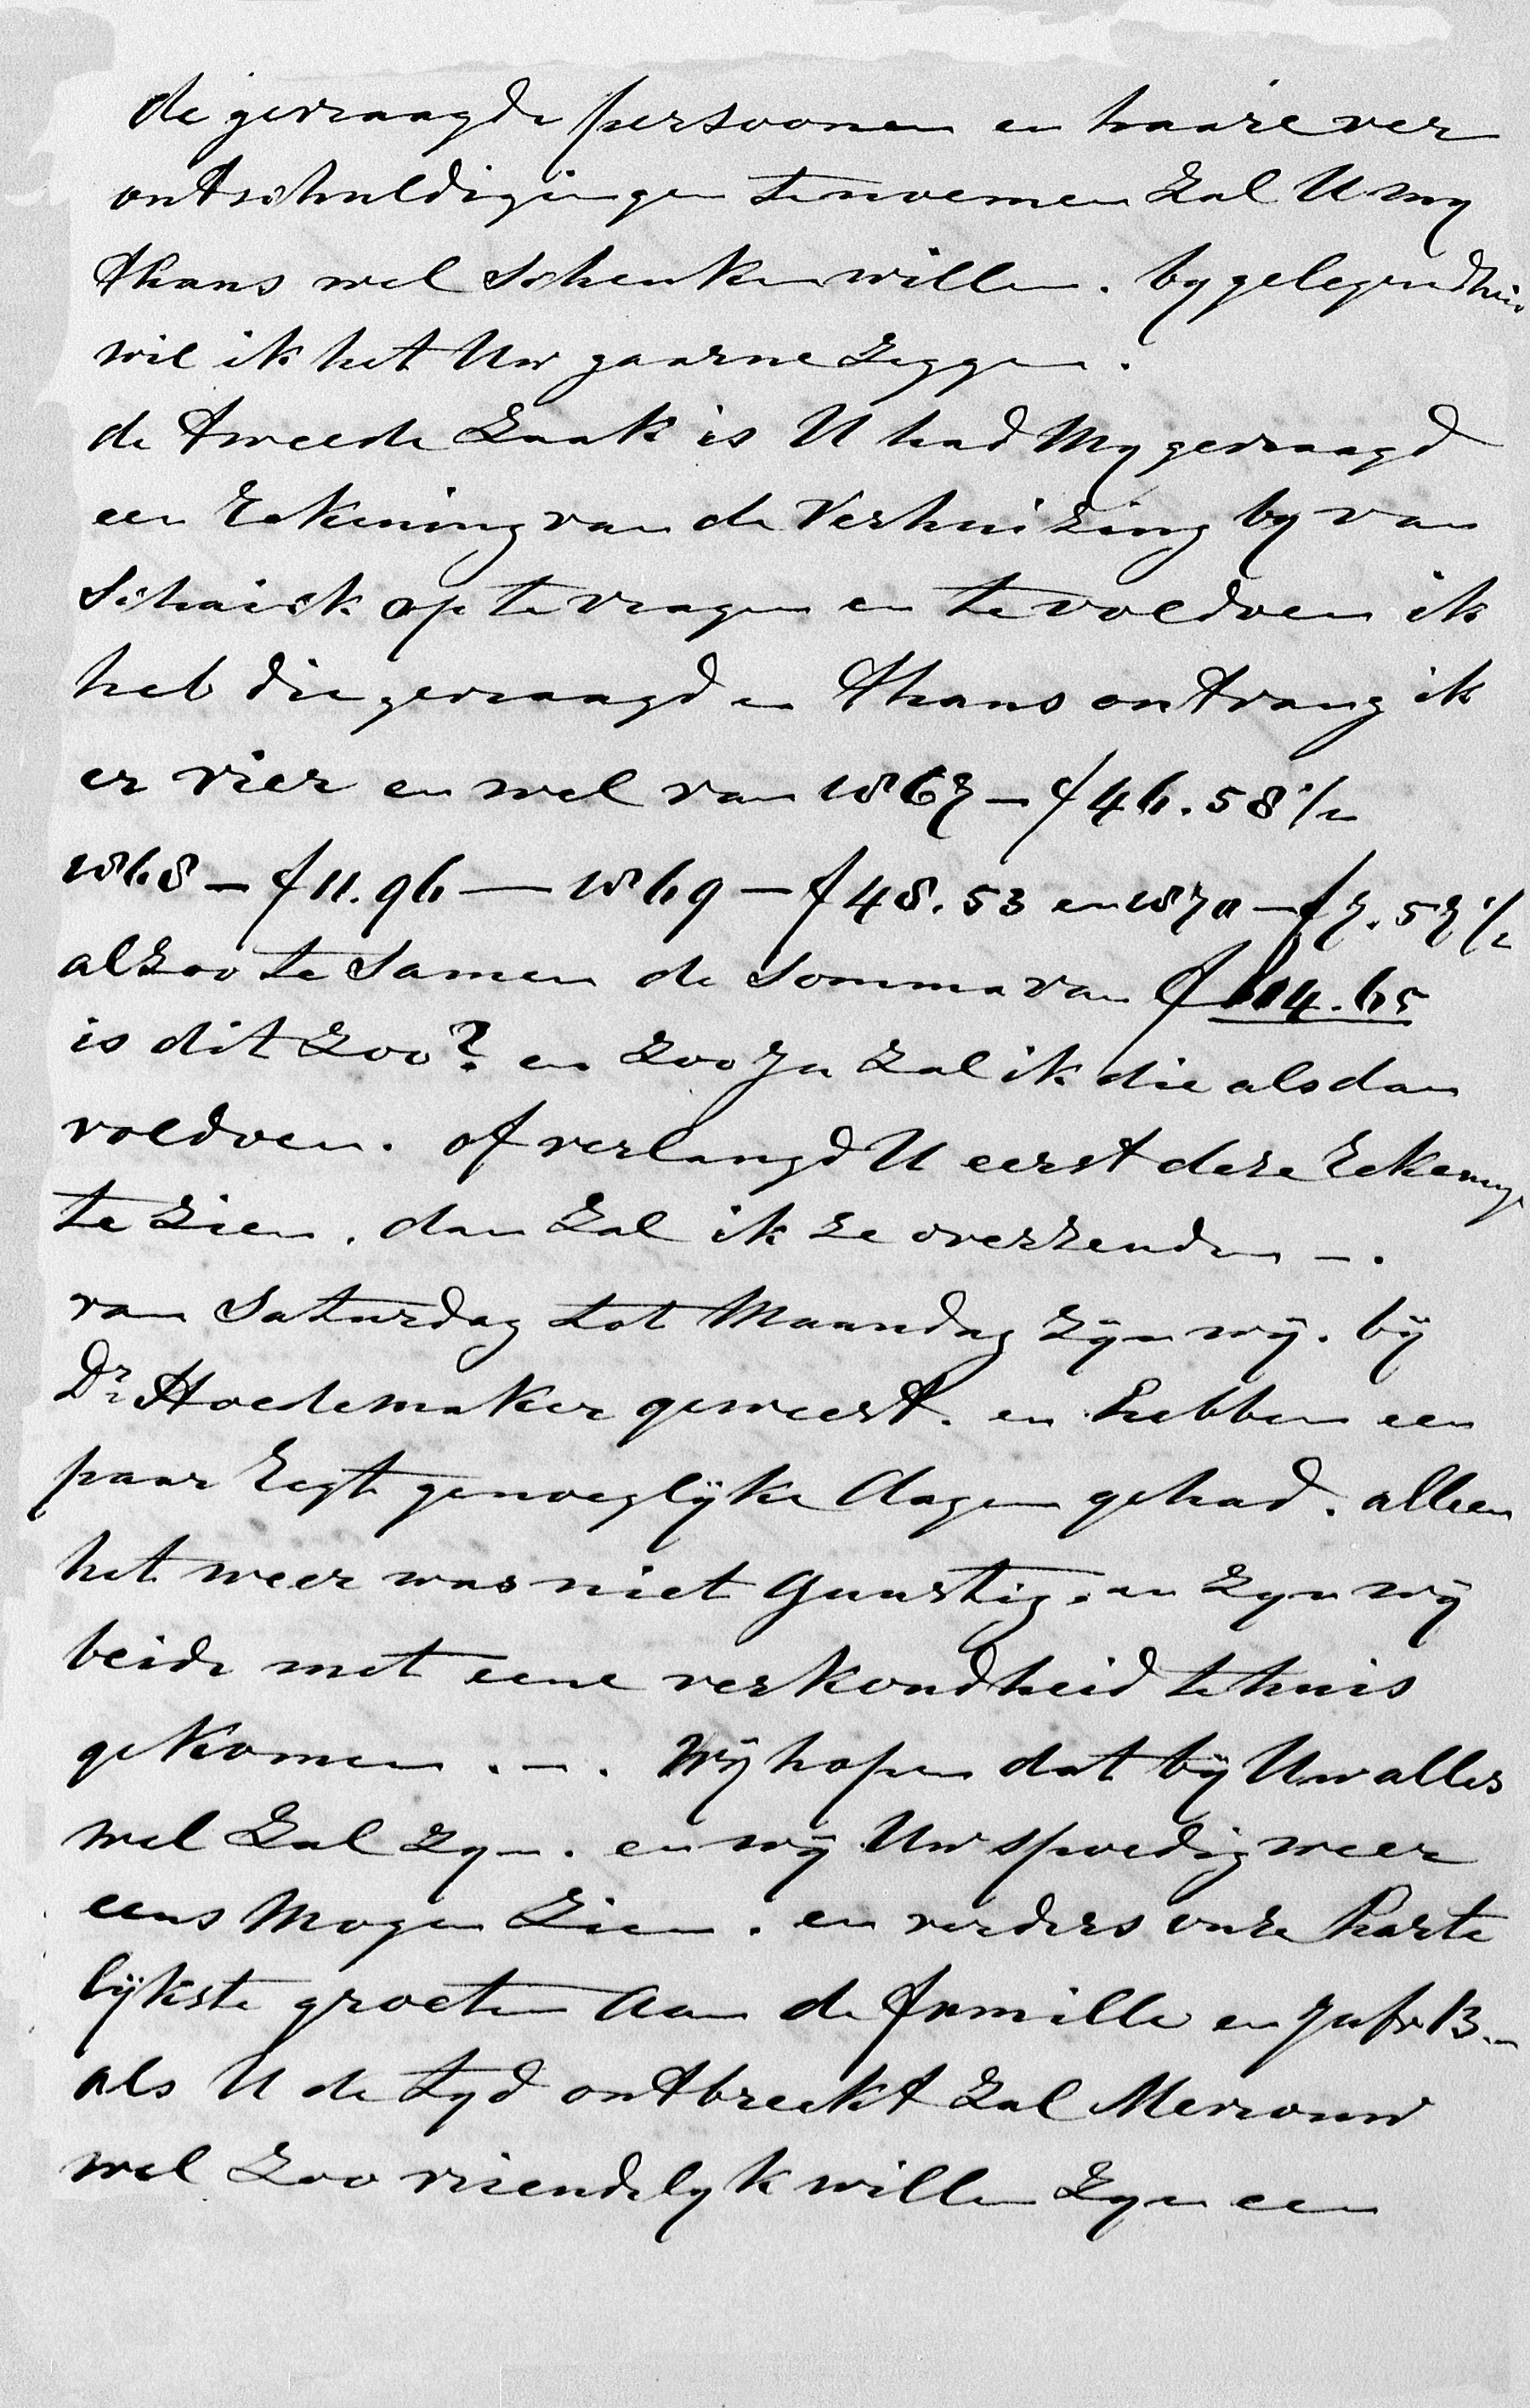 de gevraagde persoonen en haare ver
ontschuldigingen te noemen Zal U my
thans wel Schenken willen. by gelegendheid
wil ik het Uw gaarne Zeggen.
de tweede Zaak is U had My gevraagd
een Rekening van de Verhuizing by van
Schaick op te vragen en te voldoen ik
heb die gevraagd en thans ontvang ik
er vier en wel van 1867 — f 46.58 1/2
1868 — f 11.96 — 1869 — f 48.53 en 1870 — f 7.57 1/2
alzoo te Samen de Somma van f 114.65
is dit Zoo? en Zoo Ja Zal ik die als dan
voldoen. of verlangd U eerst deze Rekening
te Zien. dan Zal ik ze overzenden —.
van Saturdag tot Maandag Zyn wij. bij
Dr Hoedemaker geweest. en hebben een
paar Regt genoeglijke dagen gehad. alleen
het weer was niet Gunstig. en Zyn wij
beide met eene verkoudheid te huis
gekomen. —. Wij hopen dat bij Uw alles
wel Zal Zyn. en wij Uw spoedig weer
eens Mogen Zien. en verders onze harte
lijkste groeten Aan de Familie en Jufr B.
Als U de tyd ontbreekt Zal Mevrouw
wel Zoo vriendelyk willen Zyn een